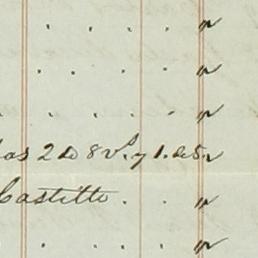 . . . . "
. . . . "
. . . . "
as 2 de 8 vs. y 1. de 5 "
Castillo . . "
. . . . "